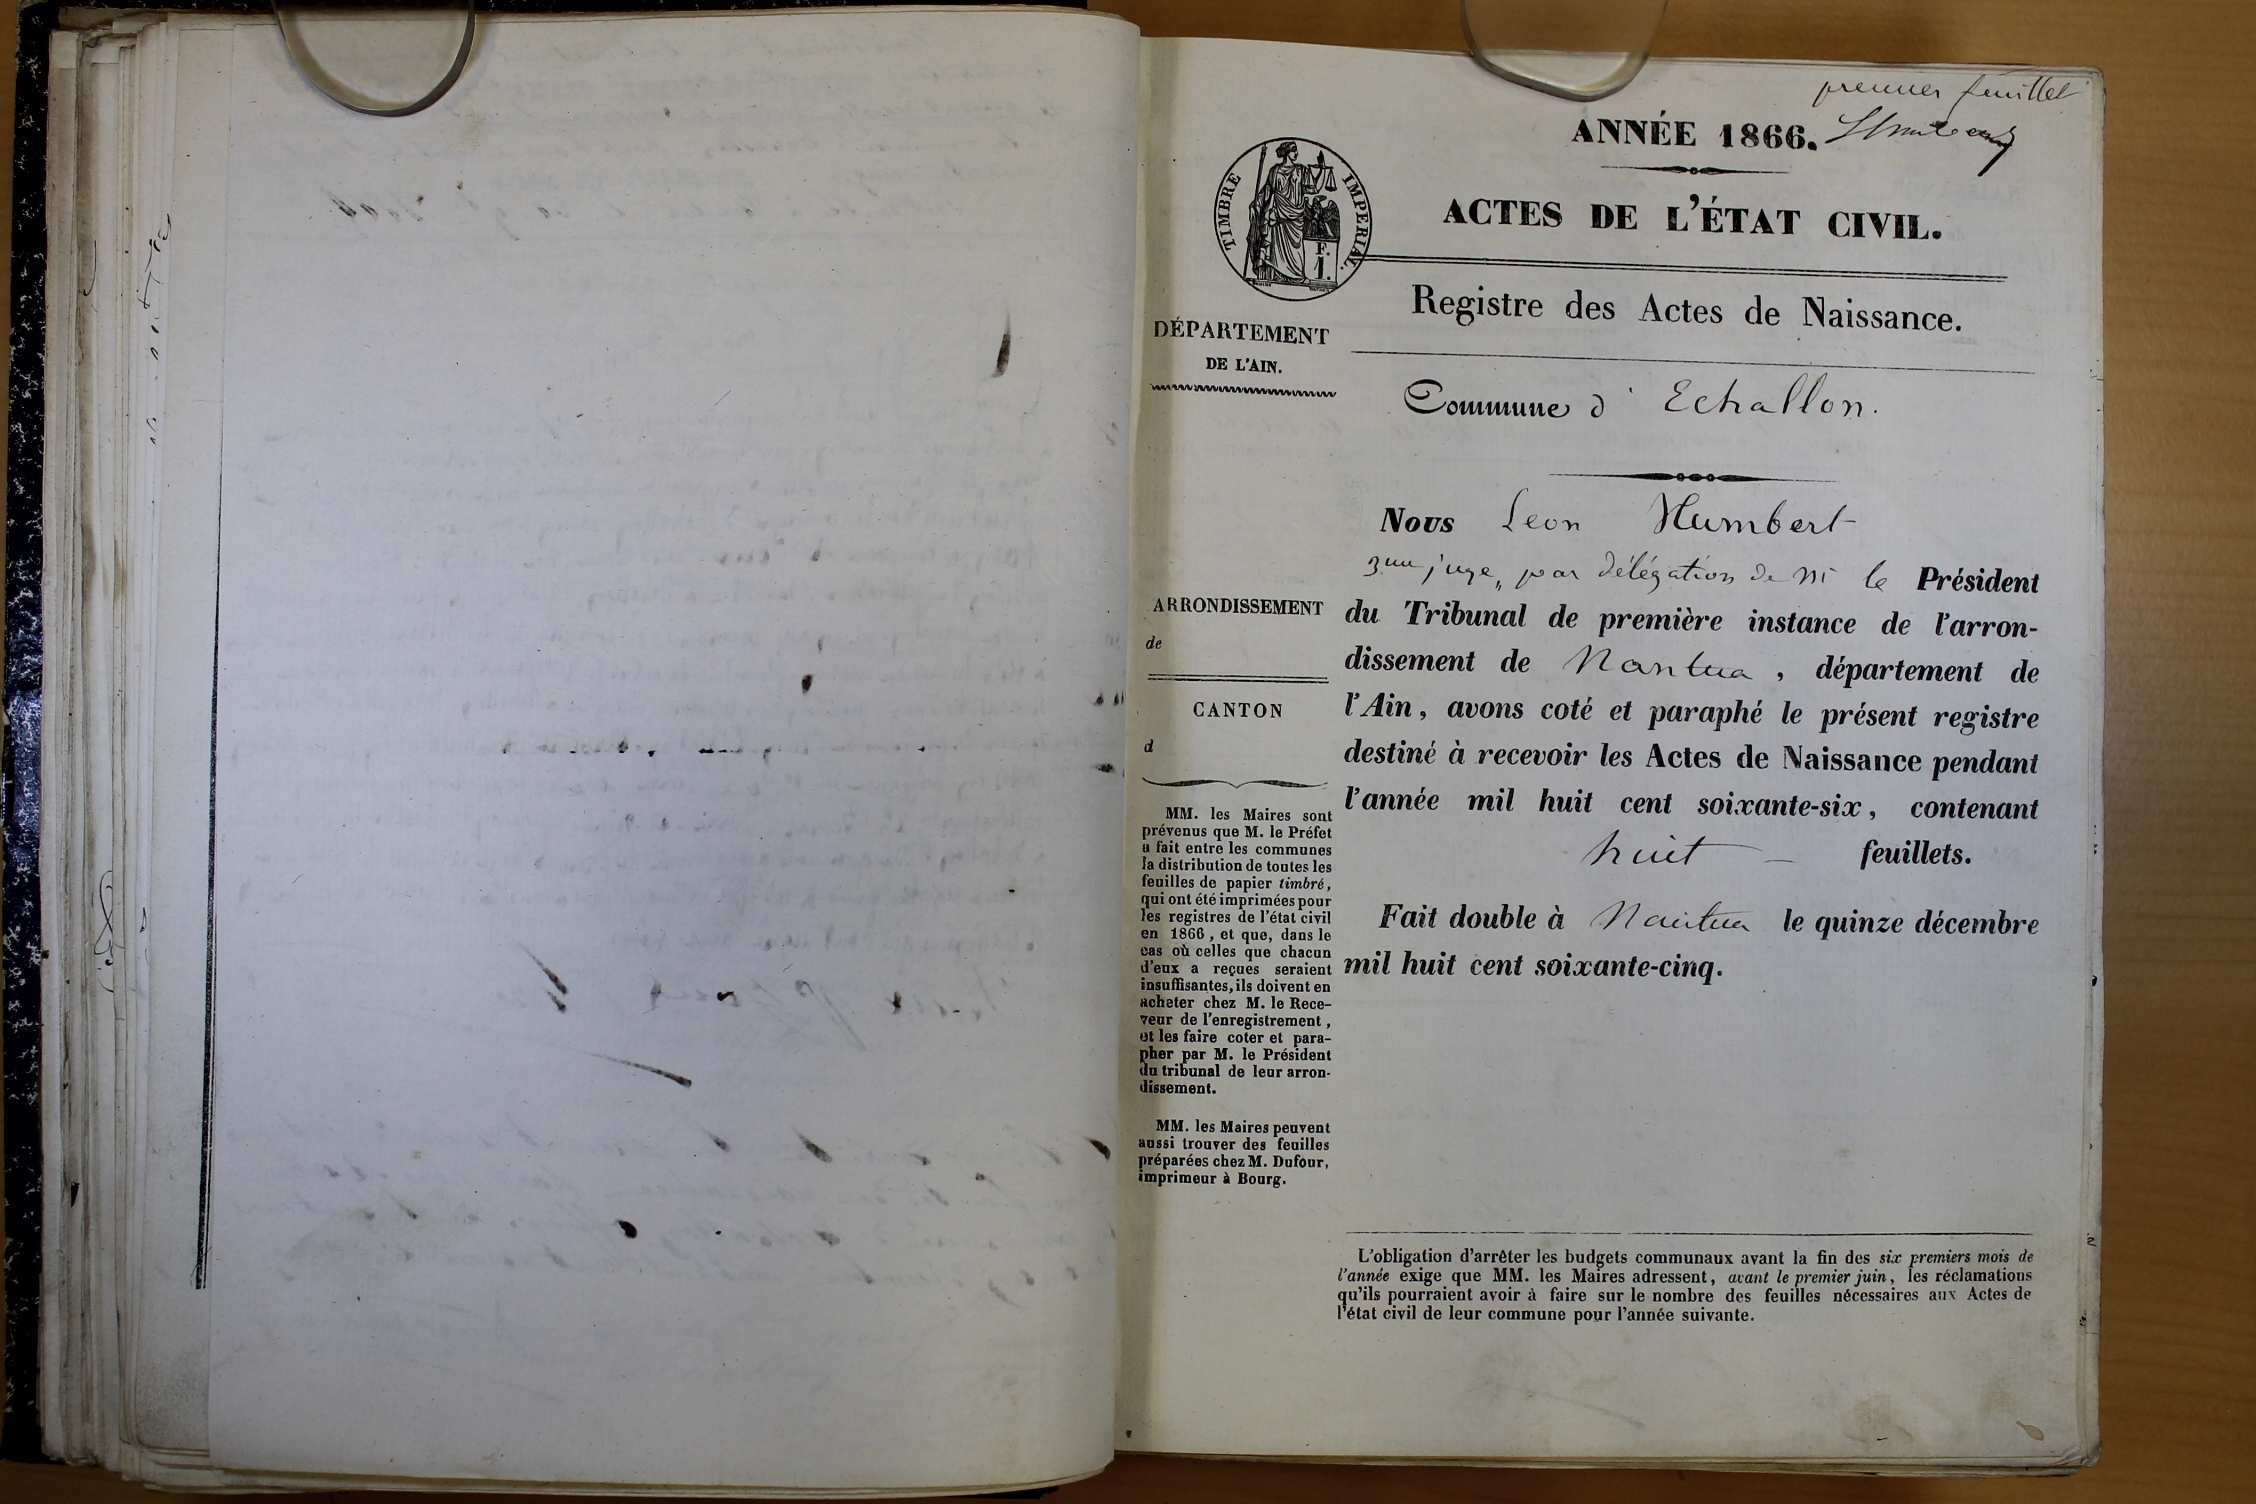 premier feuillet
ANNÉE 1866.
TIMBRE IMPERIAL.
F.
1.
ACTES DE L'ÉTAT CIVIL.
Registre des Actes de Naissance.
DÉPARTEMENT
DE L'AIN.
Commune d' Echallon.
Nous Leon Humbert
3me juge, par délégation de Mr le Président
du Tribunal de première instance de l'arron-
dissement de Nantua, département de
l'Ain, avons coté et paraphé le présent registre
destiné à recevoir les Actes de Naissance pendant
l'année mil huit cent soixante-six, contenant
huit — feuillets.
Fait double à Nantua le quinze décembre
mil huit cent soixante-cinq.
ARRONDISSEMENT
de
CANTON
d
MM. les Maires sont
prévenus que M. le Préfet
a fait entre les communes
la distribution de toutes les
feuilles de papier timbré,
qui ont été imprimées pour
les registres de l'état civil
en 1866, et que, dans le
cas où celles que chacun
d'eux a reçues seraient
insuffisantes, ils doivent en
acheter chez M. le Rece-
veur de l'enregistrement,
et les faire coter et para-
pher par M. le Président
du tribunal de leur arron-
dissement.
MM. les Maires peuvent
aussi trouver des feuilles
préparées chez M. Dufour,
imprimeur à Bourg.
L'obligation d'arrêter les budgets communaux avant la fin des six premiers mois de
l'année exige que MM. les Maires adressent, avant le premier juin, les réclamations
qu'ils pourraient avoir à faire sur le nombre des feuilles nécessaires aux Actes de
l'état civil de leur commune pour l'année suivante.